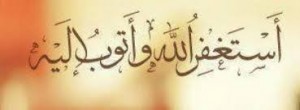 أَستَغفِرُ اللهَ وَأَتُوبُ إِلَيهِ